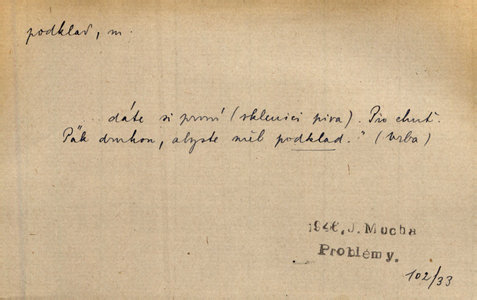 podklad, m.
... dáte si první (sklenici piva). Pro chuť.
Pak druhou, abyste měl podklad." (Vrba)
J. Mucha
Problémy.
102/33